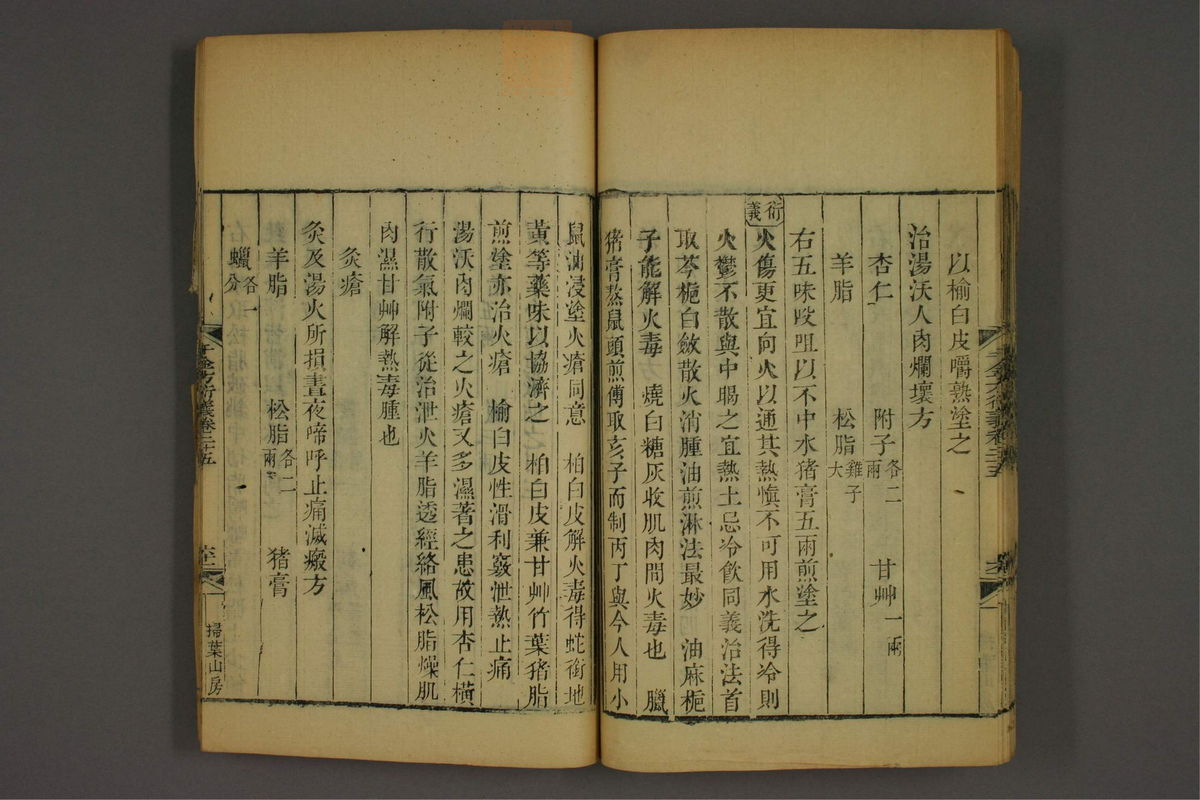 以榆白皮嚼熟塗之
治湯沃人肉爛壞方
杏仁 附子各二兩 甘艸一兩
羊脂 松脂雞子大
右五味㕮咀以不中水猪膏五兩煎塗之
衍義
火傷更宜向火以通其熱愼不可用水洗得冷則
火鬱不散與中暍之宜熱土忌冷飮同義治法首
取芩梔白斂散火消腫油煎淋法最妙 油麻梔
子能解火毒 燒白糖灰收肌肉間火毒也 臘
猪膏熬鼠頭煎傅取亥子而制丙丁與今人用小
鼠油浸塗火瘡同意 柏白皮解火毒得蛇銜地
黃等藥味以協濟之 柏白皮兼甘艸竹葉猪脂
煎塗亦治火瘡 榆白皮性滑利竅泄熱止痛
湯沃肉爛較之火瘡又多濕著之患故用杏仁橫
行散氣附子從治泄火羊脂透經絡風松脂燥肌
肉濕甘艸解熱毒腫也
灸瘡
灸及湯火所損晝夜啼呼止痛滅瘢方
羊脂 松脂各二兩 猪膏
蠟各一分
千金方衍義卷二十五
掃葉山房